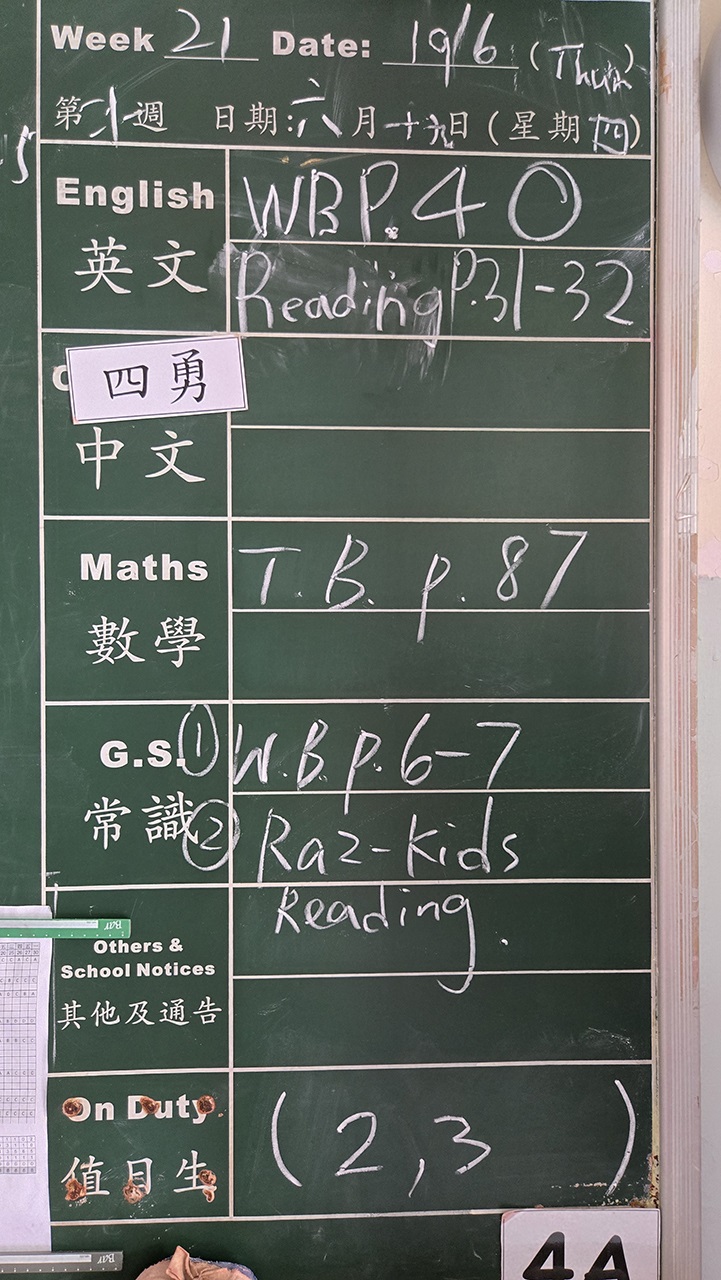 Week 21 Date: 19/6 (Thur)
第廿一週 日期:六月十九日(星期四)
English WBP.40
英文 Reading P.31-32
四勇
中文
Maths T.B. p. 87
數學
G.S. ① W.B. p. 6-7
常識 ② Raz-Kids
Reading.
Others &
School Notices
其他及通告
On Duty (2,3 )
值日生
4A